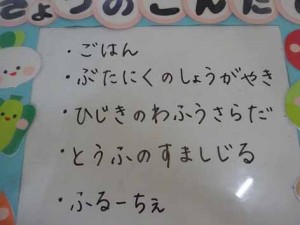 きょうのこんだて
・ごはん
・ぶたにくのしょうがやき
・ひじきのわふうさらだ
・とうふのすましじる
・ふるーちぇ